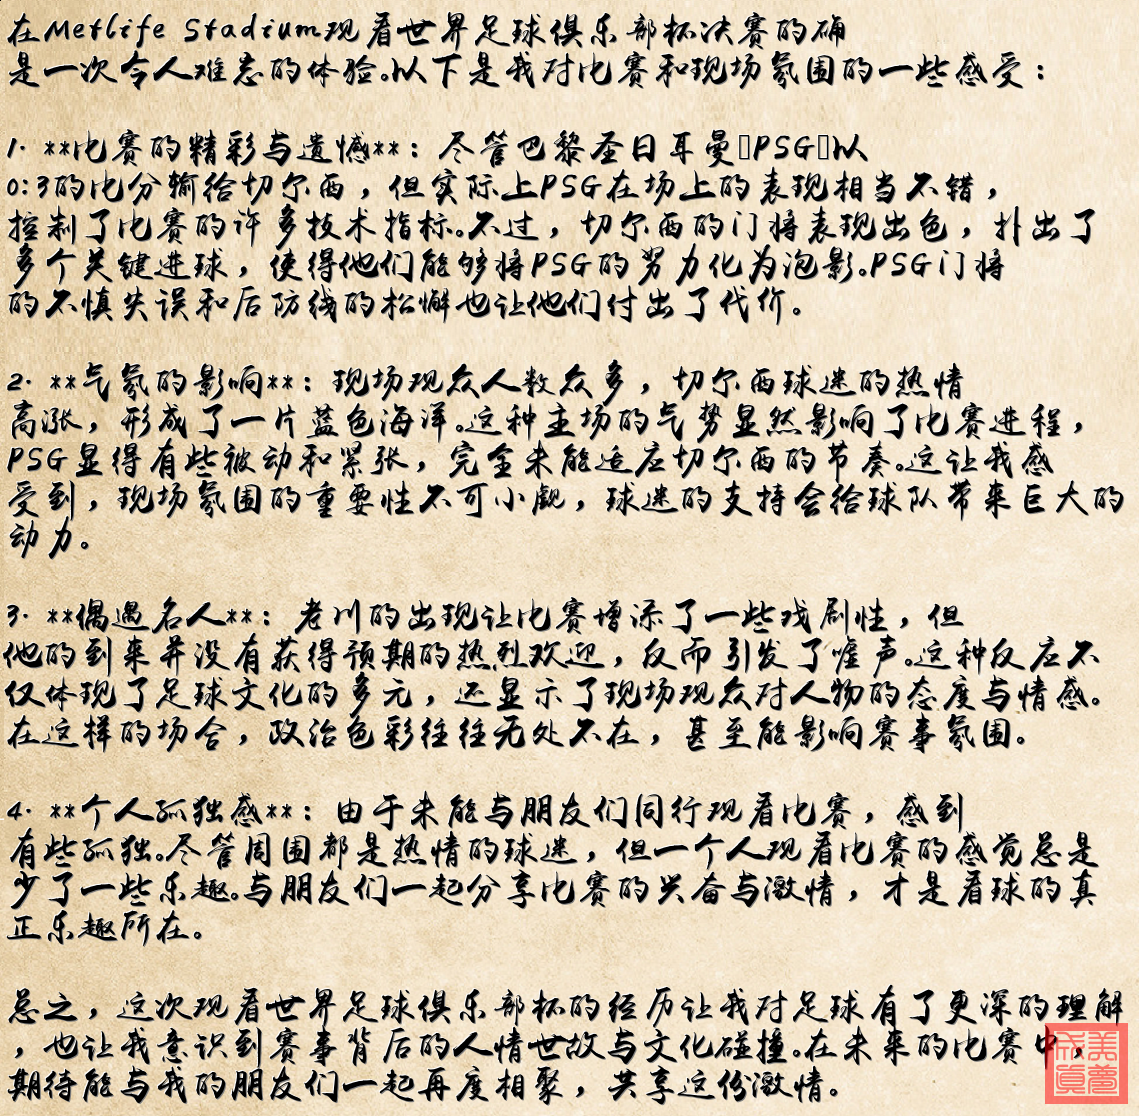 在Metlife Stadium观看世界足球俱乐部杯决赛的确
是一次令人难忘的体验。以下是我对比赛和现场氛围的一些感受：
1. **比赛的精彩与遗憾**：尽管巴黎圣日耳曼PSG以
0:3的比分输给切尔西，但实际上PSG在场上的表现相当不错，
控制了比赛的许多技术指标。不过，切尔西的门将表现出色，扑出了
多个关键进球，使得他们能够将PSG的努力化为泡影。PSG门将
的不慎失误和后防线的松懈也让他们付出了代价。
2. **气氛的影响**：现场观众人数众多，切尔西球迷的热情
高涨，形成了一片蓝色海洋。这种主场的气势显然影响了比赛进程，
PSG显得有些被动和紧张，完全未能适应切尔西的节奏。这让我感
受到，现场氛围的重要性不可小觑，球迷的支持会给球队带来巨大的
动力。
3. **偶遇名人**：老川的出现让比赛增添了一些戏剧性，但
他的到来并没有获得预期的热烈欢迎，反而引发了嘘声。这种反应不
仅体现了足球文化的多元，还显示了现场观众对人物的态度与情感。
在这样的场合，政治色彩往往无处不在，甚至能影响赛事氛围。
4. **个人孤独感**：由于未能与朋友们同行观看比赛，感到
有些孤独。尽管周围都是热情的球迷，但一个人观看比赛的感觉总是
少了一些乐趣。与朋友们一起分享比赛的兴奋与激情，才是看球的真
正乐趣所在。
总之，这次观看世界足球俱乐部杯的经历让我对足球有了更深的理解
，也让我意识到赛事背后的人情世故与文化碰撞。在未来的比赛中，
期待能与我的朋友们一起再度相聚，共享这份激情。
美梦成真